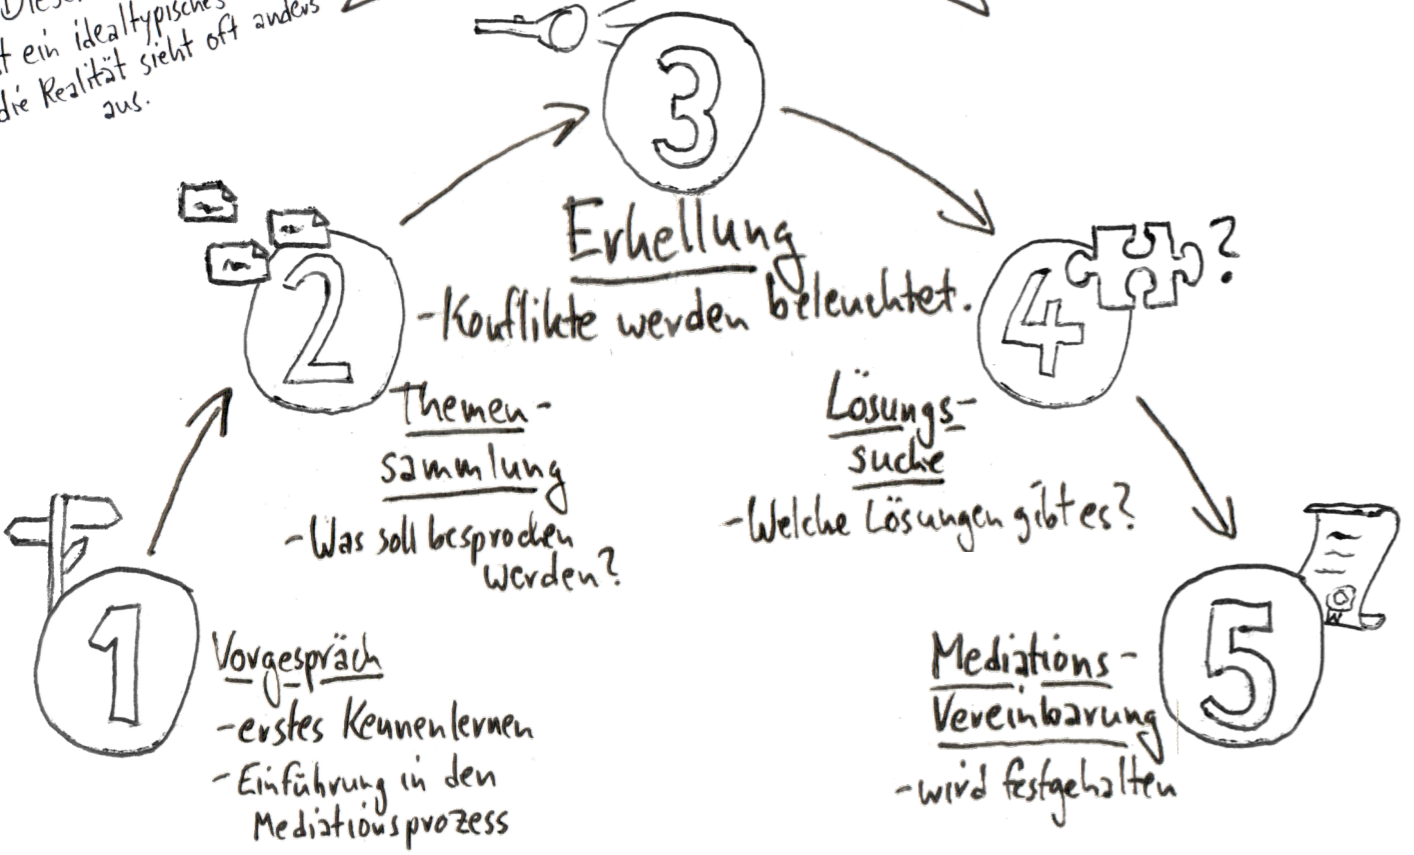 ein idealtypisches
die Realität sieht oft anders
aus.
3
Erhellung
-Konflikte werden beleuchtet.
2
Themen-
sammlung
-Was soll besprochen
werden?
4
?
Lösungs-
suche
-Welche Lösungen gibt es?
1
Vorgespräch
-erstes Kennenlernen
-Einführung in den
Mediationsprozess
5
Mediations-
Vereinbarung
-wird festgehalten